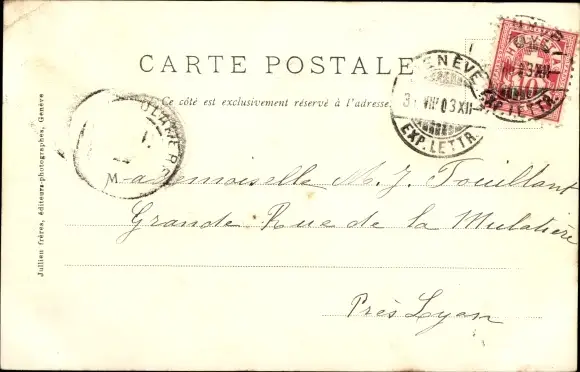 CARTE POSTALE
Ce côté est exclusivement réservé à l'adresse.
GENÈVE
EXP. LETTR.
Mademoiselle M. J. Touillant
Grande Rue de la Mulatière
Près Lyon
Jullien frères, éditeurs-photographes, Genève